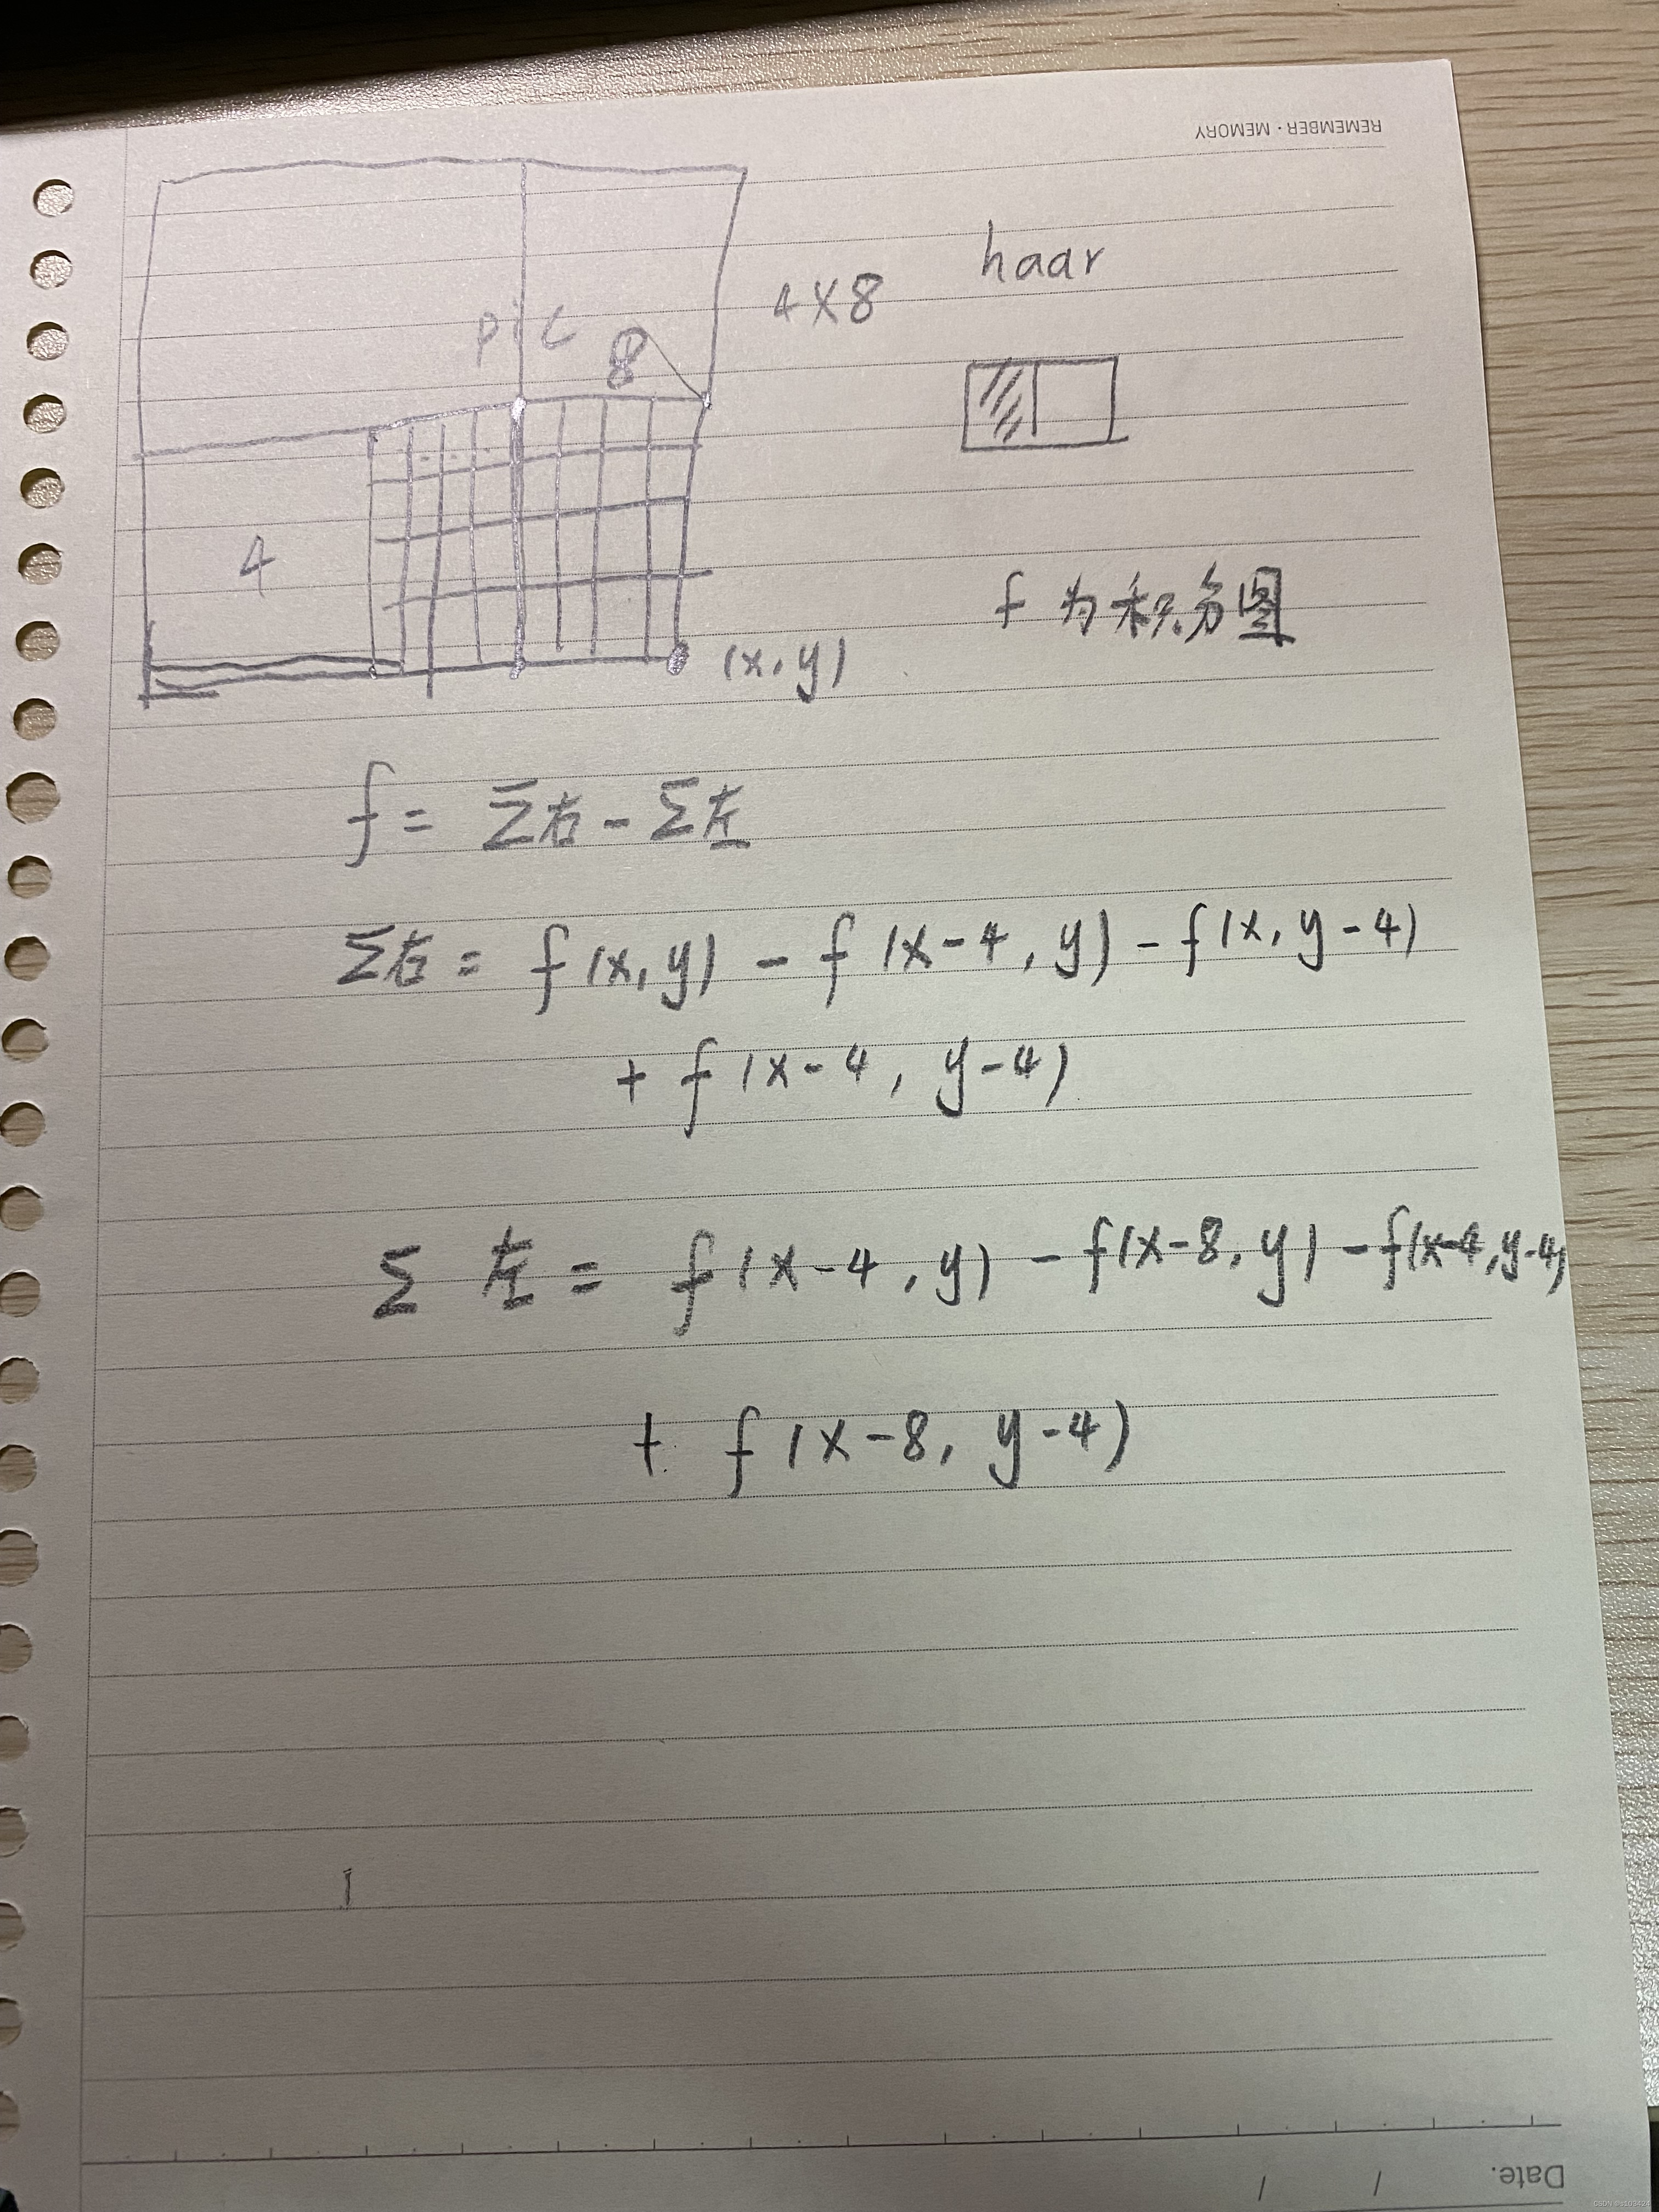 REMEMBER · MEMORY
haar
4×8
pic
8
4
f 为积分图
(x,y)
f = Σ右 - Σ左
Σ右 = f(x,y) - f(x-4,y) - f(x,y-4)
+ f(x-4,y-4)
Σ左 = f(x-4,y) - f(x-8,y) - f(x-4,y-4)
+ f(x-8,y-4)
Date.